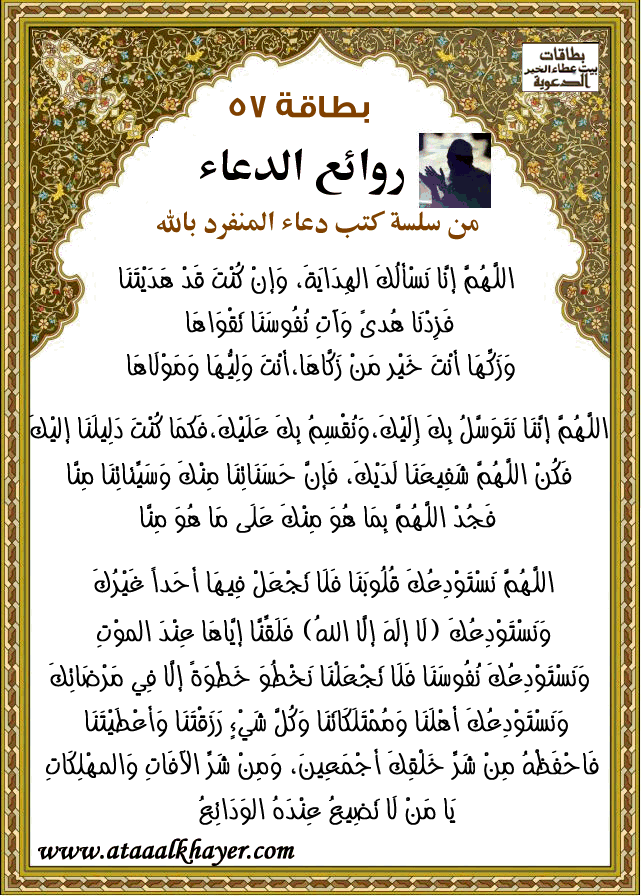 بطاقات
بيت عطاء الخير
الدعوية
بطاقة ٥٧
روائع الدعاء
من سلسة كتب دعاء المنفرد بالله
اللَّهُمَّ إنَّا نَسْألُكَ الهِدَايَةَ، وَإنْ كُنْتَ قَدْ هَدَيْتَنَا
فَزِدْنَا هُدىً وَآتِ نُفُوسَنَا تَقْوَاهَا
وَزَكِّهَا أنْتَ خَيْر مَنْ زَكَّاهَا،أنْتَ وَلِيُّهَا وَمَوْلَاهَا
اللَّهُمَّ إنَّنَا نَتَوَسَّلُ بِكَ إِلَيْكَ،وَنُقْسِمُ بِكَ عَلَيْكَ،فَكمَا كُنْتَ دَلِيلَنَا إليْكَ
فَكُنْ اللَّهُمَّ شَفِيعَنَا لَدَيْكَ، فَإنَّ حَسَنَاتِنَا مِنْكَ وَسَيِّئاتِنَا مِنَّا
فَجُدْ اللَّهُمَّ بِمَا هُوَ مِنْكَ عَلَى مَا هُوَ مِنَّا
اللَّهُمَّ نَسْتَوْدِعُكَ قُلُوبَنَا فَلَا تَجْعَلْ فِيهَا أحَداً غَيْرُكَ
وَنَسْتَوْدِعُكَ (لَا إلَهَ إلَّا اللهُ) فَلَقِّنَّا إيَّاهَا عِنْدَ الموْتِ
وَنَسْتَوْدِعُكَ نُفُوسَنَا فَلَا تَجْعَلْنَا نَخْطُوَ خَطْوَةً إلَّا فِي مَرْضَاتِكَ
وَنَسْتَوْدِعُكَ أهْلَنَا وَمُمْتَلَكَاتَنَا وَكُلَّ شَيْءٍ رَزَقْتَنَا وَأعْطَيْتَنَا
فَاحْفَظْهُ مِنْ شَرِّ خَلْقِكَ أجْمَعِينَ، وَمِنْ شَرِّ الآفَاتِ وَالمهْلِكَاتِ
يَا مَنْ لَا تَضِيعُ عِنْدَهُ الوَدَائِعُ
www.ataaalkhayer.com